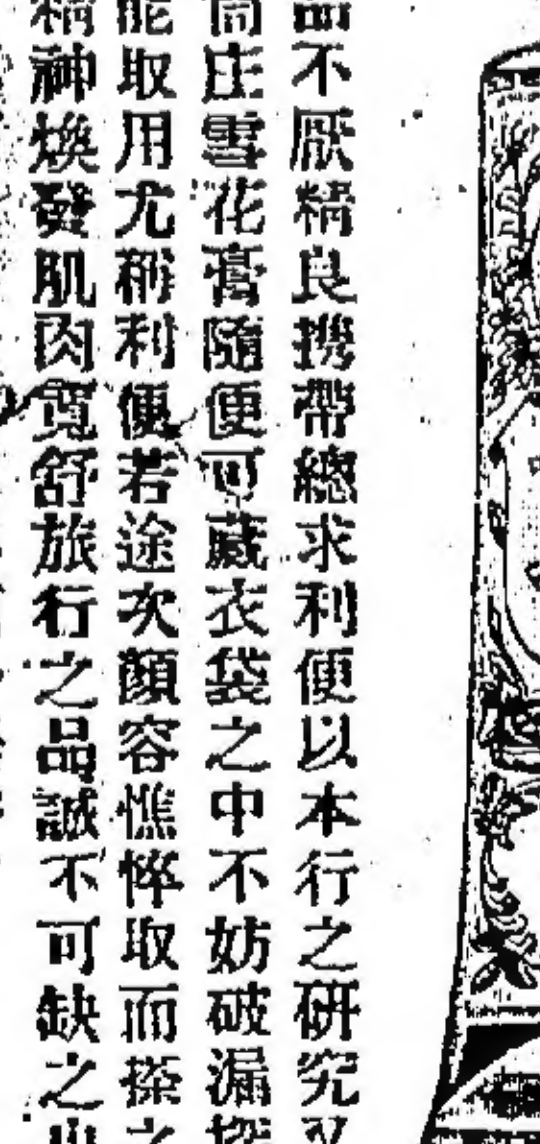 品不厭精良携帶總求利便以本行之研究又
筒庄雪花膏隨便可藏衣袋之中不妨破漏
能取用尤稱利便若途次顏容憔悴取而搽之
精神煥發肌肉寬舒旅行之品誠不可缺之